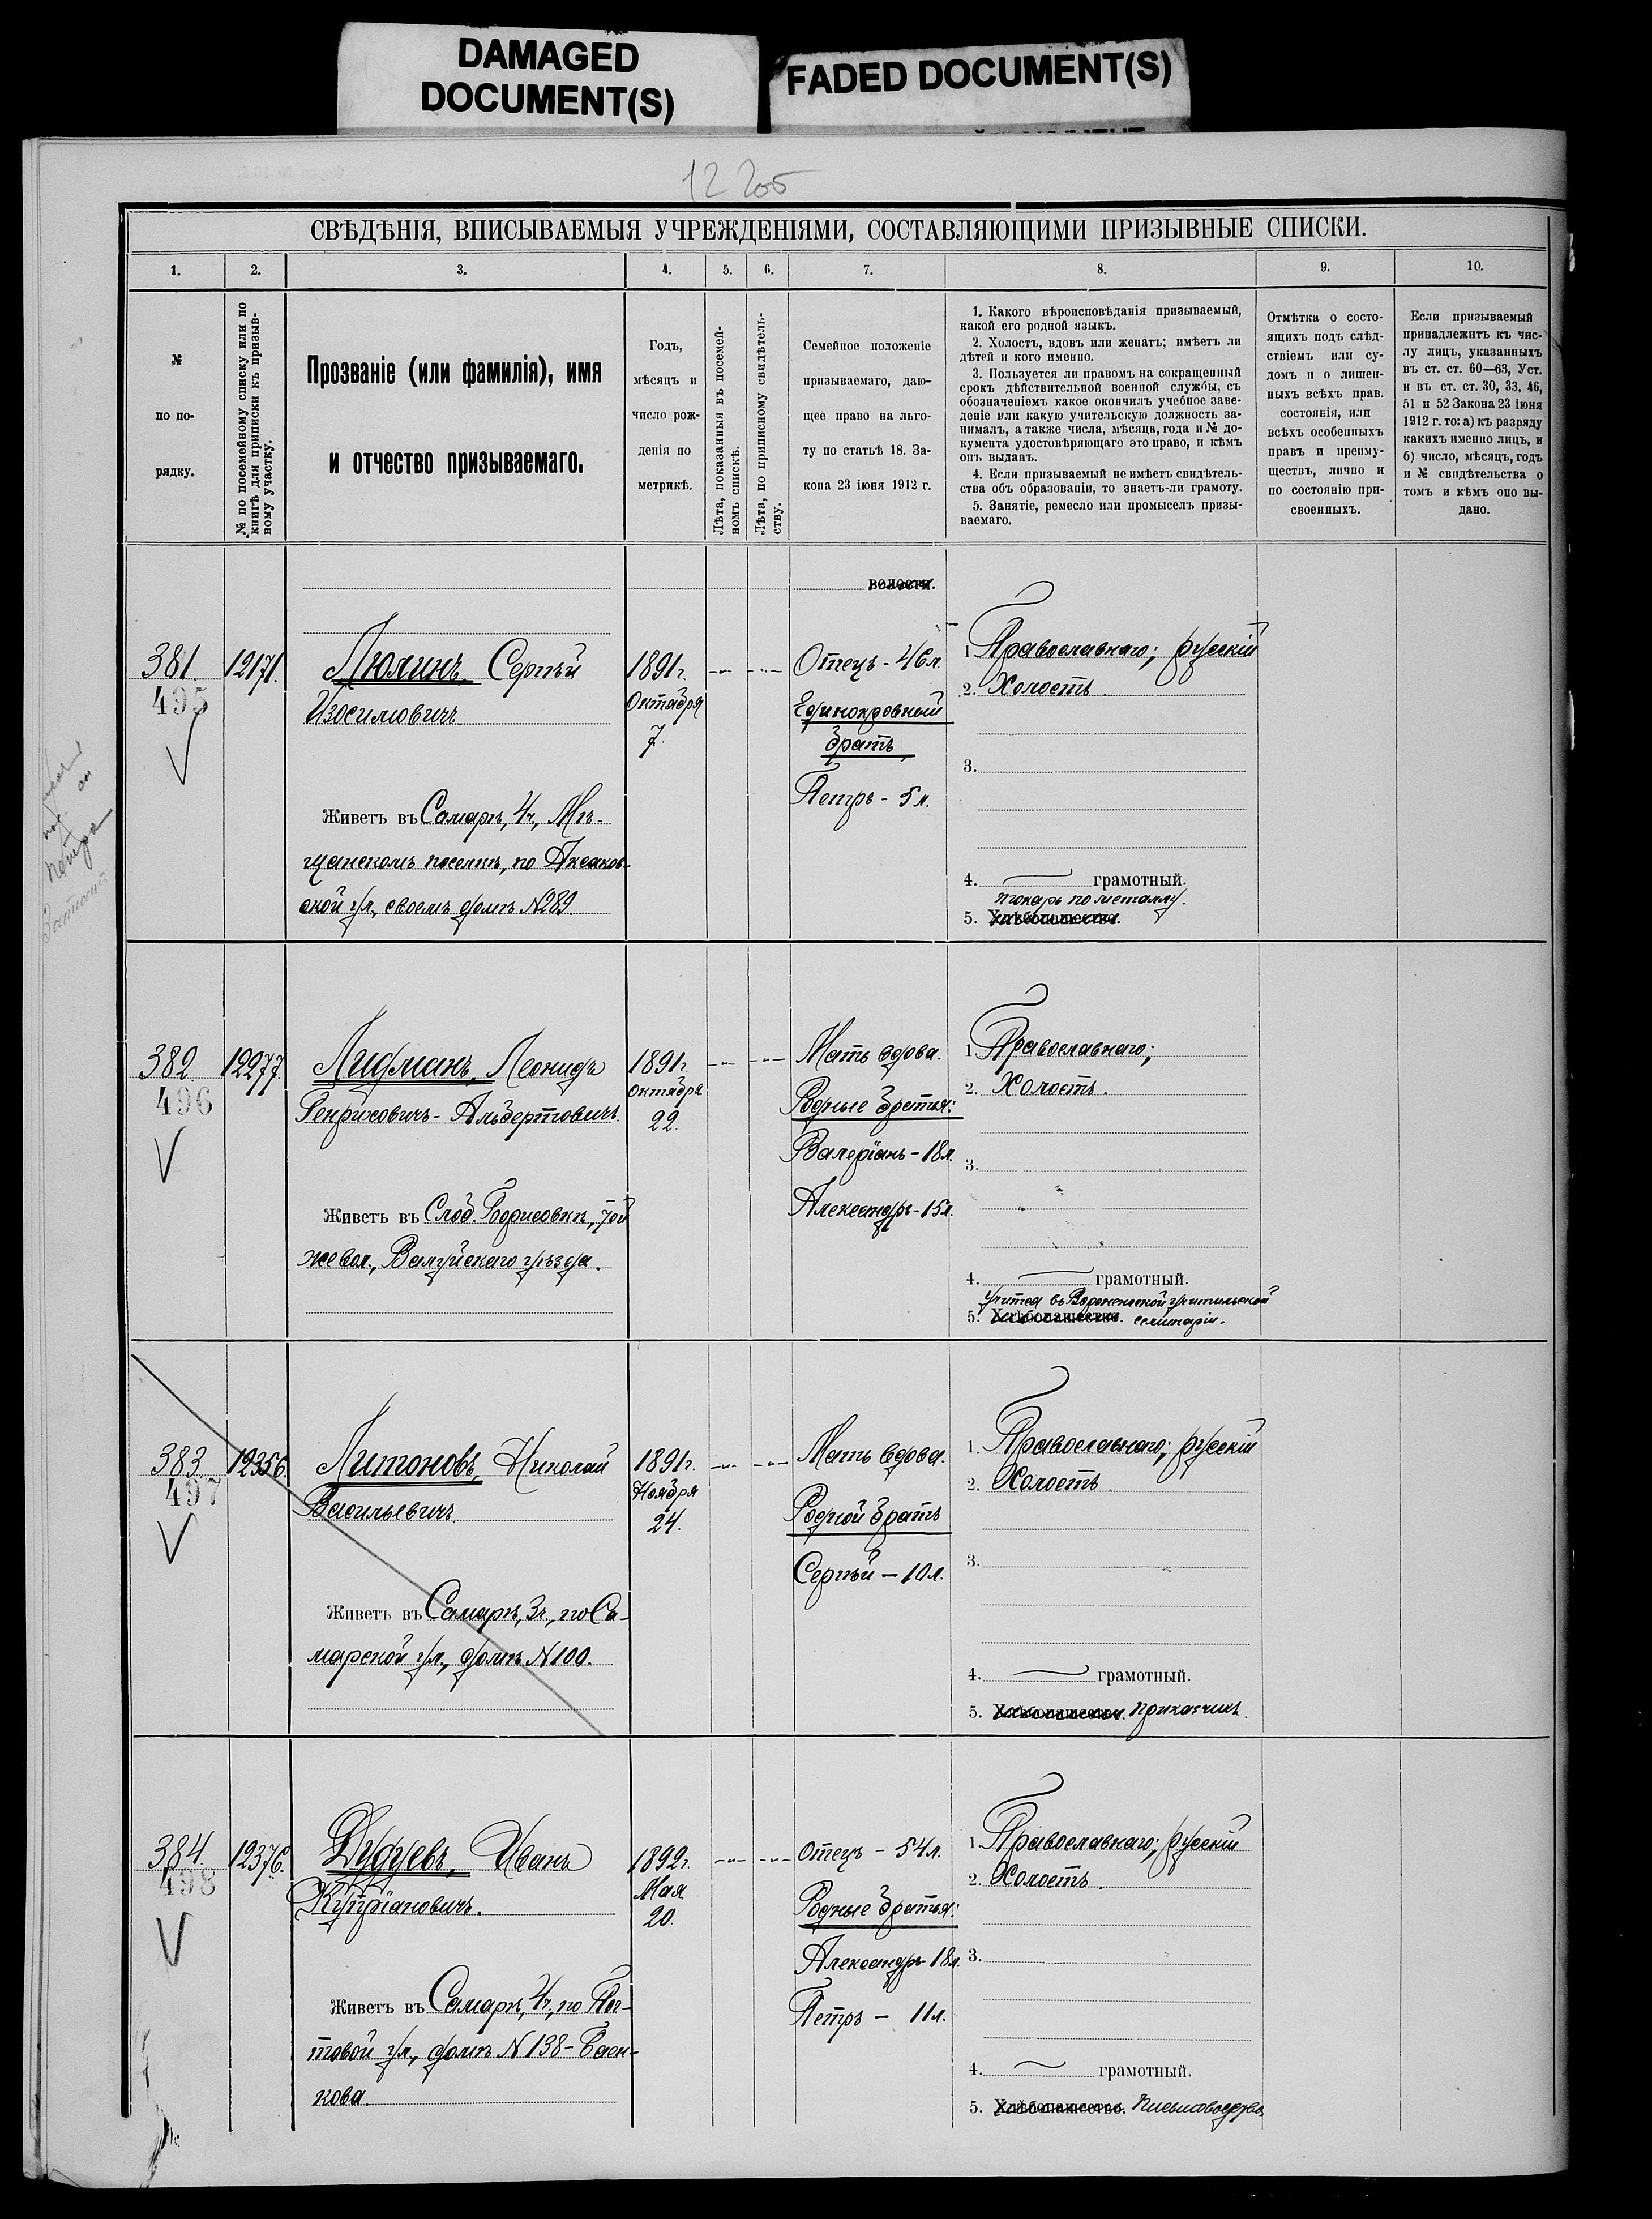 DAMAGED
DOCUMENT(S)
FADED DOCUMENT(S)
12 205
СВѢДѢНІЯ, ВПИСЫВАЕМЫЯ УЧРЕЖДЕНІЯМИ, СОСТАВЛЯЮЩИМИ ПРИЗЫВНЫЕ СПИСКИ.
1. 2. 3. 4. 5. 6. 7. 8. 9. 10.
№
по по-
рядку.
№ по посемейному списку или по
книгѣ для приписки къ призыв-
ному участку.
Прозваніе (или фамилія), имя
и отчество призываемаго.
Годъ,
мѣсяцъ и
число рож-
денія по
метрикѣ.
Лѣта, показанныя въ посемей-
номъ спискѣ.
Лѣта, по приписному свидѣтель-
ству.
Семейное положеніе
призываемаго, даю-
щее право на льго-
ту по статьѣ 18. За-
кона 23 іюня 1912 г.
1. Какого вѣроисповѣданія призываемый,
какой его родной языкъ.
2. Холостъ, вдовъ или женатъ; имѣетъ ли
дѣтей и кого именно.
3. Пользуется ли правомъ на сокращенный
срокъ дѣйствительной военной службы, съ
обозначеніемъ какое окончилъ учебное заве-
деніе или какую учительскую должность за-
нималъ, а также числа, мѣсяца, года и № до-
кумента удостовѣряющаго это право, и кѣмъ
онъ выданъ.
4. Если призываемый не имѣетъ свидѣтель-
ства объ образованіи, то знаетъ-ли грамоту.
5. Занятіе, ремесло или промыселъ призы-
ваемаго.
Отмѣтка о состо-
ящихъ подъ слѣд-
ствіемъ или су-
домъ и о лишен-
ныхъ всѣхъ прав.
состоянія, или
всѣхъ особенныхъ
правъ и преиму-
ществъ, лично и
по состоянію при-
своенныхъ.
Если призываемый
принадлежитъ къ чис-
лу лицъ, указанныхъ
въ ст. ст. 60—63, Уст.
и въ ст. ст. 30, 33, 46,
51 и 52 Закона 23 іюня
1912 г. то: а) къ разряду
какихъ именно лицъ, и
б) число, мѣсяцъ, годъ
и № свидѣтельства о
томъ и кѣмъ оно вы-
дано.
волости.
381. 12171.
495
Люлинъ, Сергѣй
Изосимовичъ
Живетъ въ Самарѣ, 4ч., Мѣ-
щанскомъ поселкѣ, по Аксаков-
ской ул., своемъ домѣ №289
1891г.
Октября
7.
Отецъ - 46л.
Единокровный
братъ
Петръ - 5л.
1. Православнаго; русскій
2. Холостъ.
3.
4. грамотный.
токарь по металлу.
5. Хлѣбопашество.
382. 12277.
496
Лидманъ, Леонидъ
Генриховичъ-Альбертовичъ
Живетъ въ Слоб. Борисовкѣ, той
же вол., Валуйскаго уѣзда.
1891г.
Октября
22.
Мать вдова.
Родные братья:
Валеріанъ - 18л.
Александръ - 15л.
1. Православнаго;
2. Холостъ.
3.
4. грамотный.
учится въ Воронежской учительской
5. Хлѣбопашество. семинаріи.
383. 12356.
497
Литоновъ, Николай
Васильевичъ.
Живетъ въ Самарѣ, 3ч., по Са-
марской ул., домъ №100.
1891г.
Ноября
24.
Мать вдова.
Родной братъ
Сергѣй - 10л.
1. Православнаго; русскій
2. Холостъ.
3.
4. грамотный.
5. Хлѣбопашество. Приказчикъ.
384. 12376.
498
Дудуевъ, Иванъ
Купріановичъ.
Живетъ въ Самарѣ, 4ч., по Поч-
товой ул., домъ №138 -
кова.
1892г.
Мая
20.
Отецъ - 54л.
Родные братья:
Александръ 18л.
Петръ - 11л.
1. Православнаго; русскій
2. Холостъ.
3.
4. грамотный.
5. Хлѣбопашество. Письмоводство.